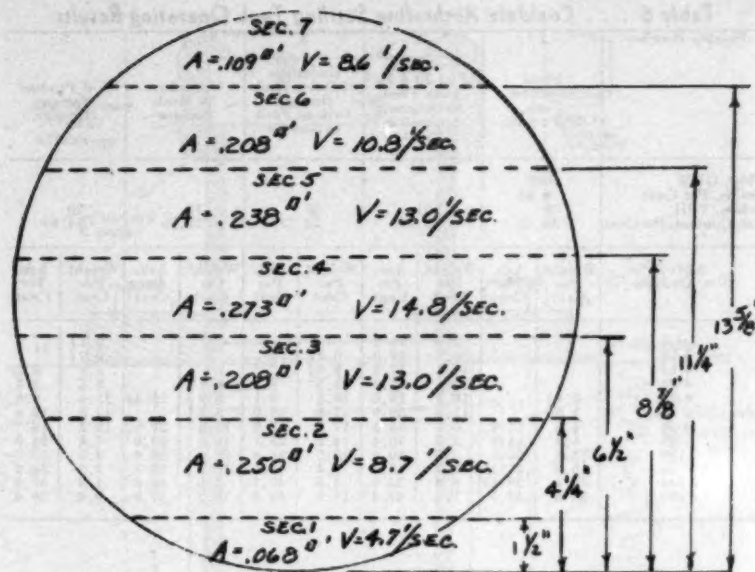 SEC. 7
A = .109 □' V = 8.6 '/SEC.
SEC 6
A = .208 □' V = 10.8 '/SEC.
SEC. 5
A = .238 □' V = 13.0 '/SEC.
SEC. 4
A = .273 □' V = 14.8 '/SEC.
SEC. 3
A = .208 □' V = 13.0 '/SEC.
SEC. 2
A = .250 □' V = 8.7 '/SEC.
SEC. 1
A = .068 □' V = 4.7 '/SEC.
1 1/2"
4 1/4"
6 1/2"
8 7/8"
11 1/4"
13 5/8"